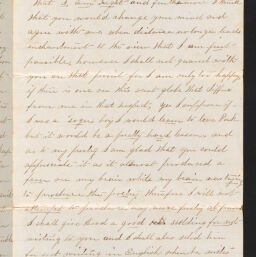 that I am right and furthermore I think
that you would change your mind and
agree with me when distance no longer lends
enchantment to the view that I am just
possible, however I shall not quarrel with
you on that point for I am only too happy
if there is one on this vast globe that differs
from me in that respect, yes I suppose if
I was a young boy I would learn to love
but it would be a pretty hard lesson and
as to my poetry I am glad that you could
appreciate it as it almost produced a
on my brain while my brain was trying
to produce the poetry therefore I will not
attempt to produce any more poetry at present
I shall give a good scolding for not
writing to you and I shall also scold him
for not writing in English when he writes